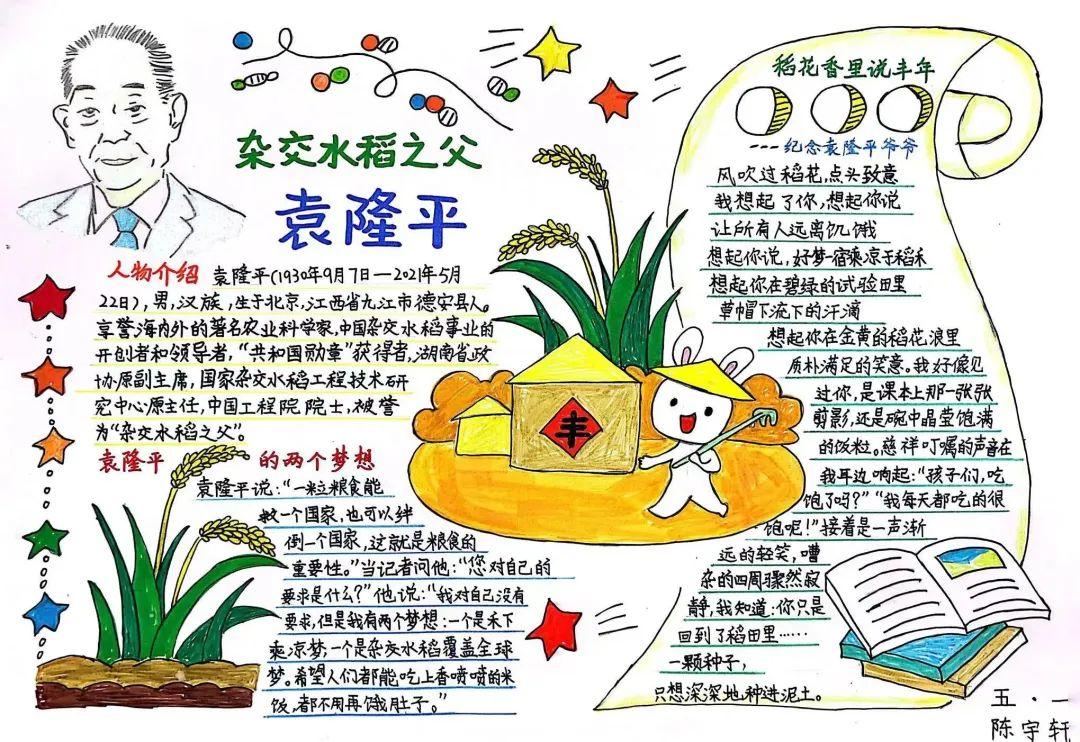 杂交水稻之父
袁隆平
人物介绍 袁隆平(1930年9月7日—2021年5月
22日),男,汉族,生于北京,江西省九江市德安县人。
享誉海内外的著名农业科学家,中国杂交水稻事业的
开创者和领导者,“共和国勋章”获得者,湖南省政
协原副主席,国家杂交水稻工程技术研
究中心原主任,中国工程院院士,被誉
为“杂交水稻之父”。
袁隆平 的两个梦想
袁隆平说:“一粒粮食能
救一个国家,也可以绊
倒一个国家,这就是粮食的
重要性。”当记者问他:“您对自己的
要求是什么?”他说:“我对自己没有
要求,但是我有两个梦想:一个是禾下
乘凉梦,一个是杂交水稻覆盖全球
梦。希望人们都能吃上香喷喷的米
饭,都不用再饿肚子。”
丰
稻花香里说丰年
---纪念袁隆平爷爷
风吹过稻花,点头致意
我想起了你,想起你说
让所有人远离饥饿
想起你说,好梦一宿乘凉于稻禾
想起你在碧绿的试验田里
草帽下流下的汗滴
想起你在金黄的稻花浪里
质朴满足的笑意。我好像见
过你,是课本上那一张张
剪影,还是碗中晶莹饱满
的饭粒。慈祥叮嘱的声音在
我耳边响起:“孩子们,吃
饱了吗?”“我每天都吃的很
饱呢!”接着是一声渐
远的轻笑,嘈
杂的四周骤然寂
静,我知道:你只是
回到了稻田里……
一颗种子,
只想深深地种进泥土。
五·一
陈宇轩